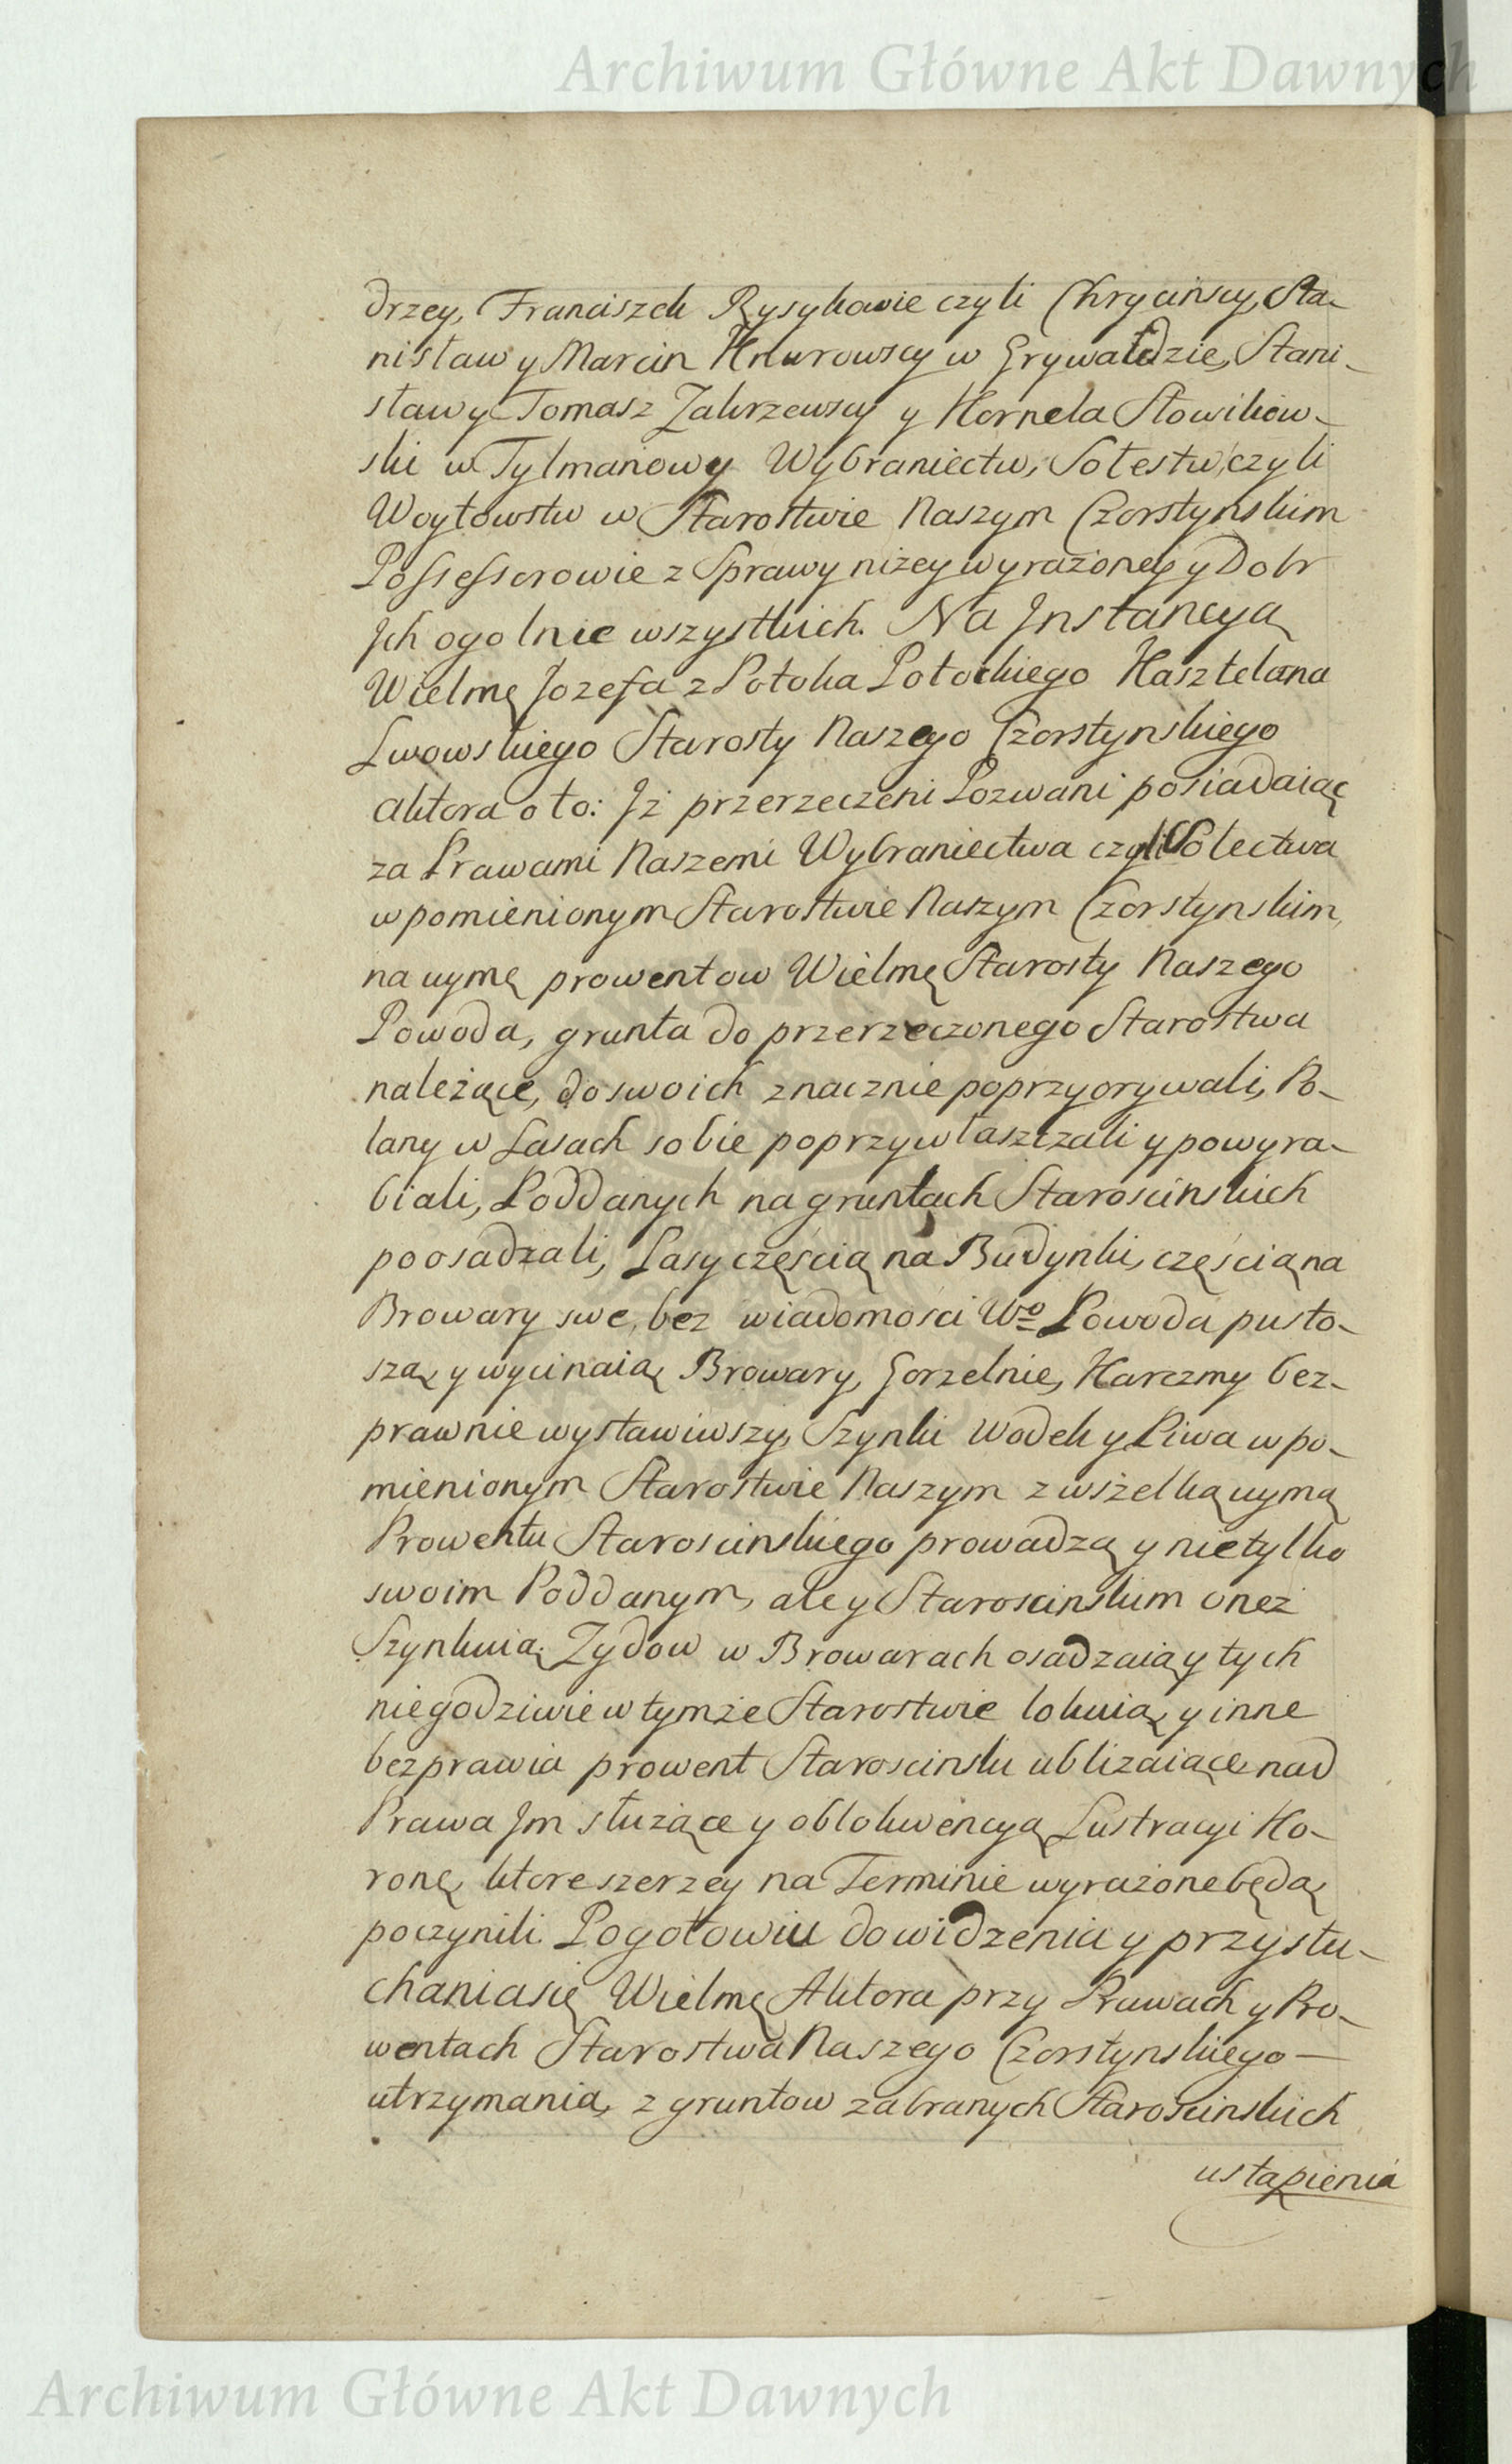 Archiwum Główne Akt Dawnych
drzey, Franciszek Rysykowie czyli Chrycinscy, Sta-
nisław y Marcin Knurowscy w Grywałdzie, Stani-
sław y Tomasz Zakrzewscy y Kornela Słowikow-
ski w Tylmanowy Wybraniectw, Sołestw, czyli
Woytowstw w Starostwie Naszym Czorstynskim
Possessorowie z Sprawy niżey wyrażoney y Dobr
Jch ogolnie wszystkich. Na Jnstancyą
Wielmę Jozefa z Potoka Potockiego Kasztelana
Lwowskiego Starosty Naszego Czorstynskiego
Aktora o to: Jż przerzeczeni Pozwani posiadaiąc
za Prawami Naszemi Wybraniectwa czyli Sołectwa
w pomienionym Starostwie Naszym Czorstynskim,
na uymę prowentow Wielmę Starosty Naszego
Powoda, grunta do przerzeczonego Starostwa
należące, do swoich znacznie poprzyorywali, Po-
lany w Lasach sobie poprzywłaszczali y powyra-
biali, Poddanych na gruntach Staroscinskich
poosadzali, Lasy częścią na Budynki, częścią na
Browary swe, bez wiadomości Wo Powoda pusto-
szą y wycinaią Browary, Gorzelnie, Karczmy bez-
prawnie wystawiwszy, Szynki Wodek y Piwa w po-
mienionym Starostwie Naszym z wszelką uymą
Prowentu Staroscinskiego prowadzą y nie tylko
swoim Poddanym, ale y Staroscinskim onez
Szynkuią, Zydow w Browarach osadzaią y tych
niegodziwie w tymże Starostwie lokuią y inne
bezprawia prowent Staroscinski ublizaiące nad
Prawa Jm służące y oblokwencyą Lustracyi Ko-
ronę, ktore szerzey na Terminie wyrażone będą
poczynili. Pogotowiu do widzenia y przysłu-
chania się Wielmę Aktora przy Prawach y Pro-
wentach Starostwa Naszego Czorstynskiego —
utrzymania, z gruntow zabranych Staroscinskich
ustąpienia
Archiwum Główne Akt Dawnych